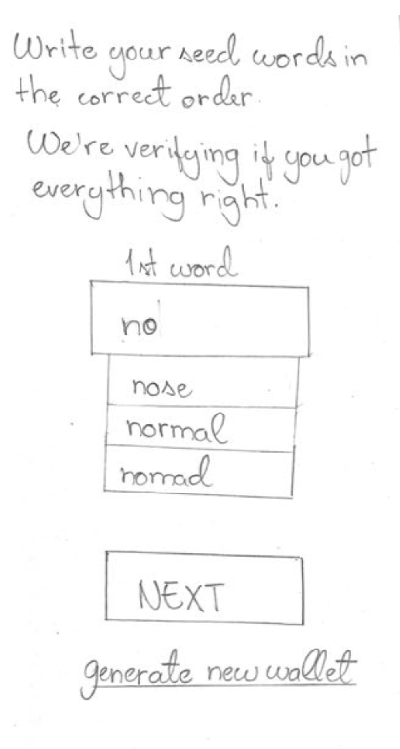 Write your seed words in
the correct order.
We're verifying if you got
everything right.
1st word
no
nose
normal
nomad
NEXT
generate new wallet